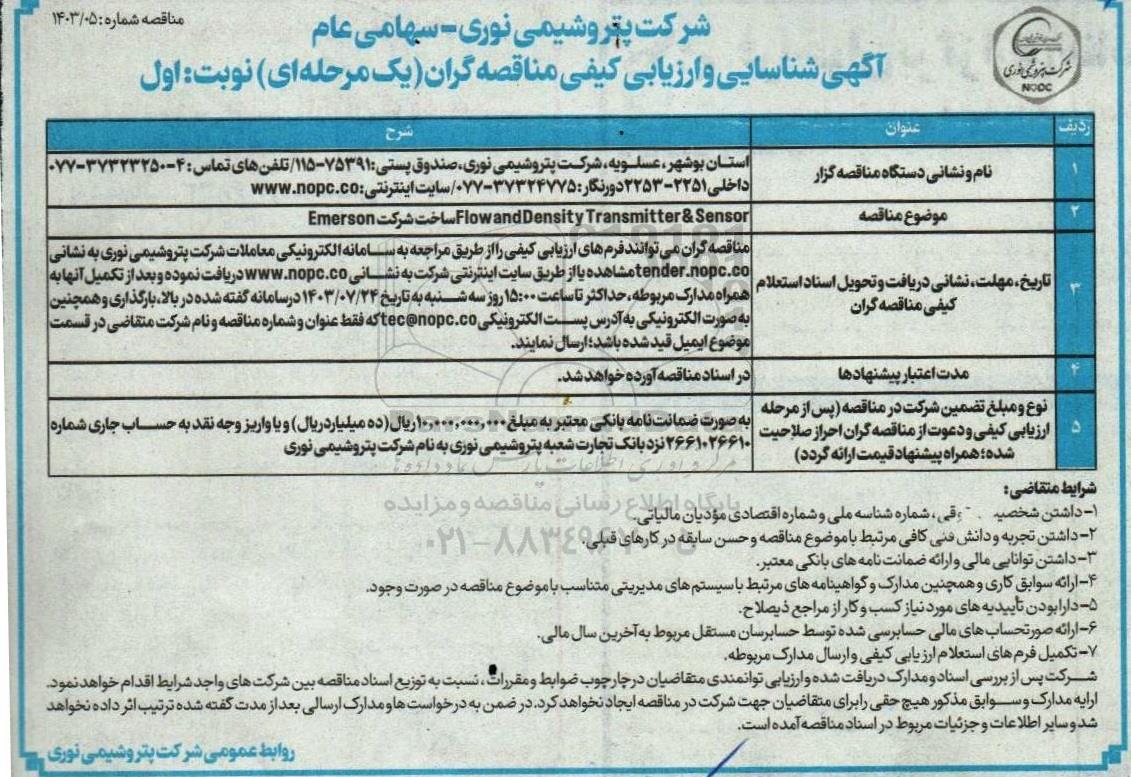 مناقصه شماره: ۱۴۰۳/۰۵
شرکت پتروشیمی نوری - سهامی عام
آگهی شناسایی و ارزیابی کیفی مناقصه گران (یک مرحله ای) نوبت: اول
شرکت پتروشیمی نوری
NOPC
ردیف
عنوان
شرح
۱
نام و نشانی دستگاه مناقصه گزار
استان بوشهر، عسلویه، شرکت پتروشیمی نوری، صندوق پستی: ۷۵۳۹۱-۱۱۵/ تلفن های تماس: ۴-۳۷۳۲۳۲۵۰-۰۷۷
داخلی ۲۲۵۱-۲۲۵۳ دورنگار: ۳۷۳۲۴۷۷۵-۰۷۷/ سایت اینترنتی: www.nopc.co
۲
موضوع مناقصه
Flow and Density Transmitter & Sensor ساخت شرکت Emerson
۳
تاریخ، مهلت، نشانی دریافت و تحویل اسناد استعلام
کیفی مناقصه گران
مناقصه گران می توانند فرم های ارزیابی کیفی را از طریق مراجعه به سامانه الکترونیکی معاملات شرکت پتروشیمی نوری به نشانی
tender.nopc.co مشاهده یا از طریق سایت اینترنتی شرکت به نشانی www.nopc.co دریافت نموده و بعد از تکمیل آنها به
همراه مدارک مربوطه، حداکثر تا ساعت ۱۵:۰۰ روز سه شنبه به تاریخ ۱۴۰۳/۰۷/۲۴ در سامانه گفته شده در بالا، بارگذاری و همچنین
به صورت الکترونیکی به آدرس پست الکترونیکی tec@nopc.co که فقط عنوان و شماره مناقصه و نام شرکت متقاضی در قسمت
موضوع ایمیل قید شده باشد؛ ارسال نمایند.
۴
مدت اعتبار پیشنهادها
در اسناد مناقصه آورده خواهد شد.
۵
نوع و مبلغ تضمین شرکت در مناقصه (پس از مرحله
ارزیابی کیفی و دعوت از مناقصه گران احراز صلاحیت
شده؛ همراه پیشنهاد قیمت ارائه گردد)
به صورت ضمانت نامه بانکی معتبر به مبلغ ۱۰,۰۰۰,۰۰۰,۰۰۰ ریال (ده میلیارد ریال) و یا واریز وجه نقد به حساب جاری شماره
۲۶۶۱۰۲۶۶۱۰ نزد بانک تجارت شعبه پتروشیمی نوری به نام شرکت پتروشیمی نوری
شرایط متقاضی:
۱- داشتن شماره شناسه ملی و شماره اقتصادی مؤدیان مالیاتی.
۲- داشتن تجربه و دانش فنی کافی مرتبط با موضوع مناقصه و حسن سابقه در کارهای قبلی.
۳- داشتن توانایی مالی و ارائه ضمانت نامه های بانکی معتبر.
۴- ارائه سوابق کاری و همچنین مدارک و گواهینامه های مرتبط با سیستم های مدیریتی متناسب با موضوع مناقصه در صورت وجود.
۵- دارا بودن تأییدیه های مورد نیاز کسب و کار از مراجع ذیصلاح.
۶- ارائه صورتحساب های مالی حسابرسی شده توسط حسابرسان مستقل مربوط به آخرین سال مالی.
۷- تکمیل فرم های استعلام ارزیابی کیفی و ارسال مدارک مربوطه.
شرکت پس از بررسی اسناد و مدارک دریافت شده و ارزیابی توانمندی متقاضیان در چارچوب ضوابط و مقررات، نسبت به توزیع اسناد مناقصه بین شرکت های واجد شرایط اقدام خواهد نمود.
ارایه مدارک و سوابق مذکور هیچ حقی را برای متقاضیان جهت شرکت در مناقصه ایجاد نخواهد کرد. در ضمن به درخواست ها و مدارک ارسالی بعد از مدت گفته شده ترتیب اثر داده نخواهد
شد و سایر اطلاعات و جزئیات مربوط در اسناد مناقصه آمده است.
روابط عمومی شرکت پتروشیمی نوری
پایگاه اطلاع رسانی مناقصه و مزایده